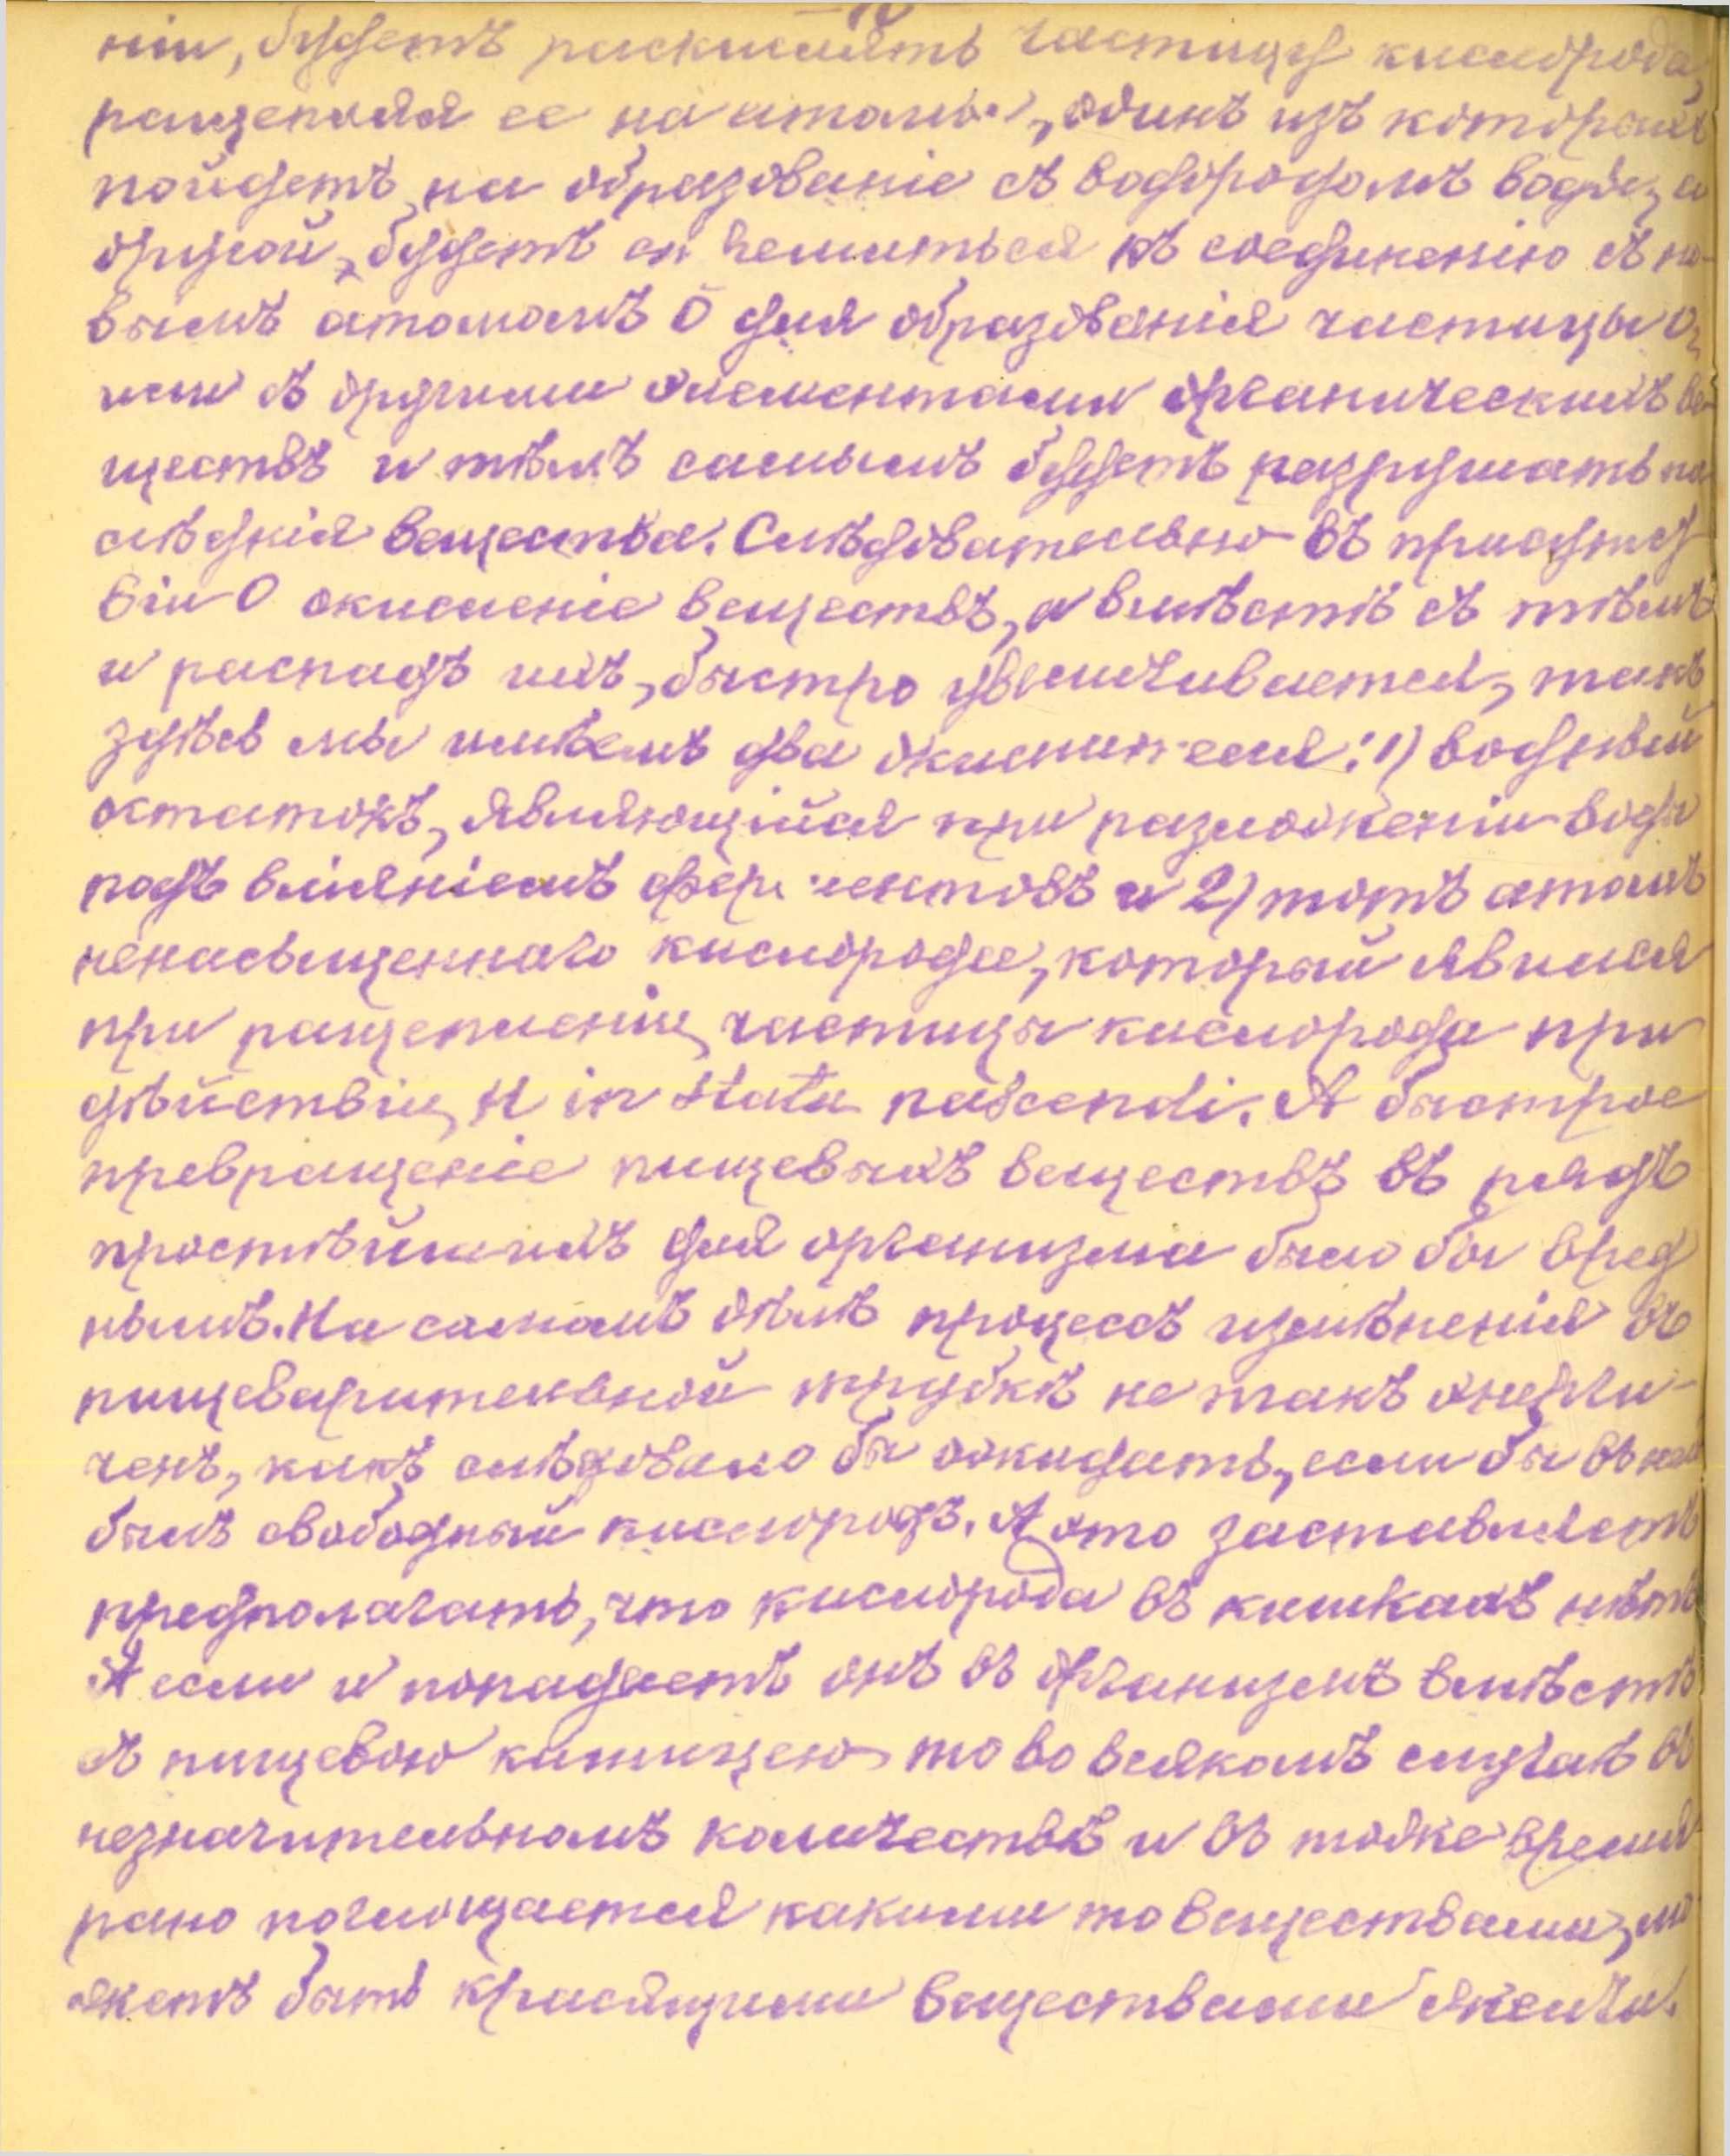 ніи, будетъ раскислять частицу кислорода,
ращепляя ее на атомы, одинъ изъ которыхъ
пойдетъ на образованіе съ водородомъ воды, а
другой, будетъ стремиться къ соединенію съ но-
вымъ атомомъ О для образованія частицы О2
или съ другими элементами органическихъ ве-
ществъ и тѣмъ самымъ будетъ разрушать по-
слѣднія вещества. Слѣдовательно въ присутст-
віи О окисленіе веществъ, а вмѣстѣ съ тѣмъ
и распадъ ихъ, быстро увеличивается, такъ
здѣсь мы имѣемъ два окислителя: 1) водный
остатокъ, являющійся при разложеніи воды
подъ вліяніемъ ферментовъ и 2) тотъ атомъ
ненасыщеннаго кислорода, который явился
при ращепленіи частицы кислорода при
дѣйствіи Н in statu nascendi. А быстрое
превращеніе пищевыхъ веществъ въ рядъ
простѣйшихъ для организма было бы вред
нымъ. На самомъ дѣлѣ процессъ измѣненія въ
пищеварительной трубкѣ не такъ энерги-
ченъ, какъ слѣдовало бы ожидать, если бы въ ней
былъ свободный кислородъ. А это заставляетъ
предполагать, что кислорода въ кишкахъ нѣтъ
А если и попадаетъ онъ въ организмъ вмѣстѣ
съ пищевою кашицею, то во всякомъ случаѣ въ
незначительномъ количествѣ и въ тоже время
рано поглощается какими то веществами, мо
жетъ быть красящими веществами желчи.